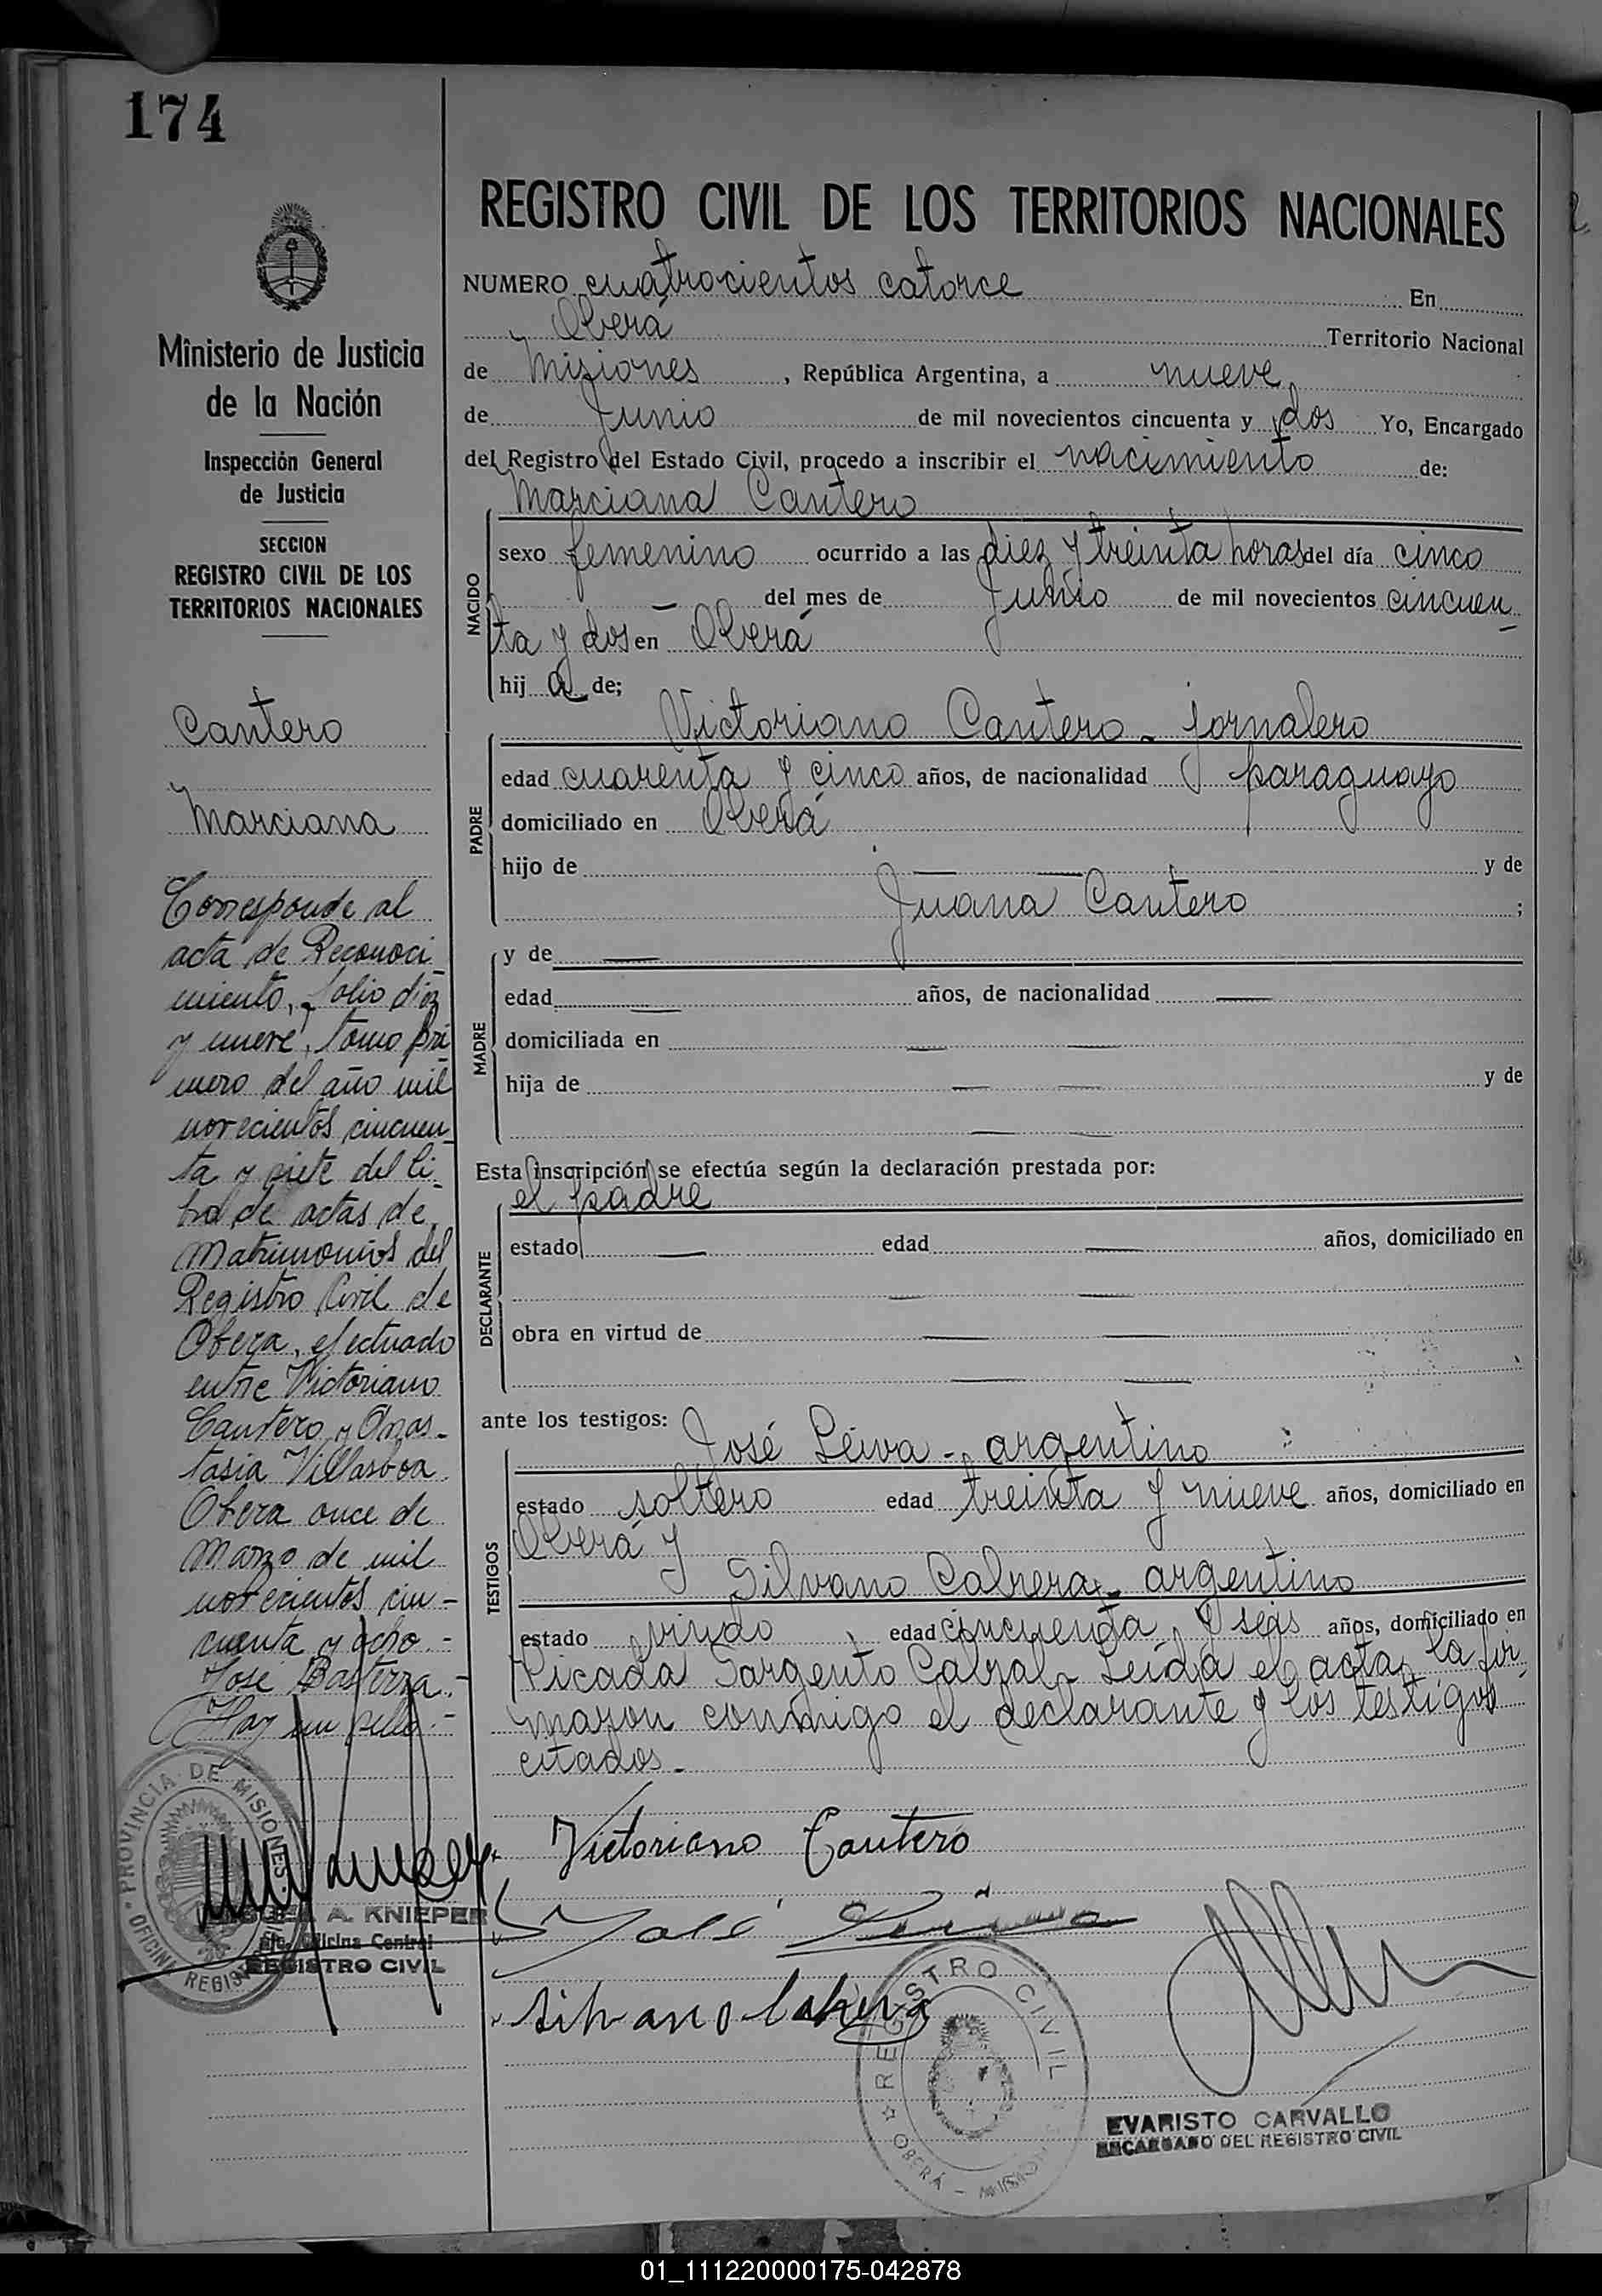 174
Ministerio de Justicia
de la Nación
Inspección General
de Justicia
SECCION
REGISTRO CIVIL DE LOS
TERRITORIOS NACIONALES
Cantero
Marciana
Corresponde al
acta de Reconoci
miento, folio diez
y nueve, tomo pri
mero del año mil
novecientos cincuen
ta y siete del li
bro de actas de
Matrimonios del
Registro Civil de
Obera, efectuado
entre Victoriano
Cantero y Anas-
tasia Villasboa
Obera once de
Marzo de mil
novecientos cin-
cuenta y ocho.-
José Basterra.-
Hay un sello.-
PROVINCIA DE MISIONES
OFICINA REGIS
A. KNIEPER
Oficina Central
REGISTRO CIVIL
REGISTRO CIVIL DE LOS TERRITORIOS NACIONALES
NUMERO cuatrocientos catorce En
Oberá Territorio Nacional
de Misiones, República Argentina, a nueve
de Junio de mil novecientos cincuenta y dos Yo, Encargado
del Registro del Estado Civil, procedo a inscribir el nacimiento de:
Marciana Cantero
NACIDO
sexo femenino ocurrido a las diez y treinta horas del día cinco
— del mes de Junio de mil novecientos cincuen
ta y dos en Oberá
hij a de;
Victoriano Cantero - jornalero
PADRE
edad cuarenta y cinco años, de nacionalidad paraguayo
domiciliado en Oberá
hijo de — — y de
Juana Cantero ;
MADRE
y de —
edad — años, de nacionalidad —
domiciliada en — —
hija de — — y de
— —
Esta inscripción se efectúa según la declaración prestada por:
el padre
DECLARANTE
estado — edad — años, domiciliado en
— —
obra en virtud de — —
— —
ante los testigos:
José Leiva - argentino
TESTIGOS
estado soltero edad treinta y nueve años, domiciliado en
Oberá y
Silvano Cabrera - argentino
estado viudo edad cincuenta y seis años, domiciliado en
Picada Sargento Cabral - Leida el acta, la fir
maron conmigo el declarante y los testigos
citados.-
Victoriano Cantero
José Leiva
Silvano Cabrera
REGISTRO CIVIL
OBERÁ - MISIONES
EVARISTO CARVALLO
ENCARGADO DEL REGISTRO CIVIL
01_111220000175-042878